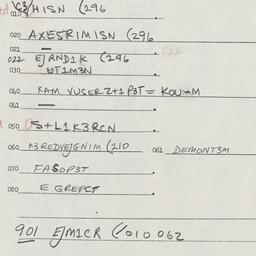 010 HISN (296
020 AXE5RIMISN (296
021 —
022 EJRND1K (296
030 WT1M3N
040 KAM VUSERZ+1P3T = KOU-M
041 —
050 S+L1K3RCN
060 N3REDVEJGNIM (210 061 DEMONT3M
070 FASOP3T
080 E GREFCT
901 EJM1CR (/010 062